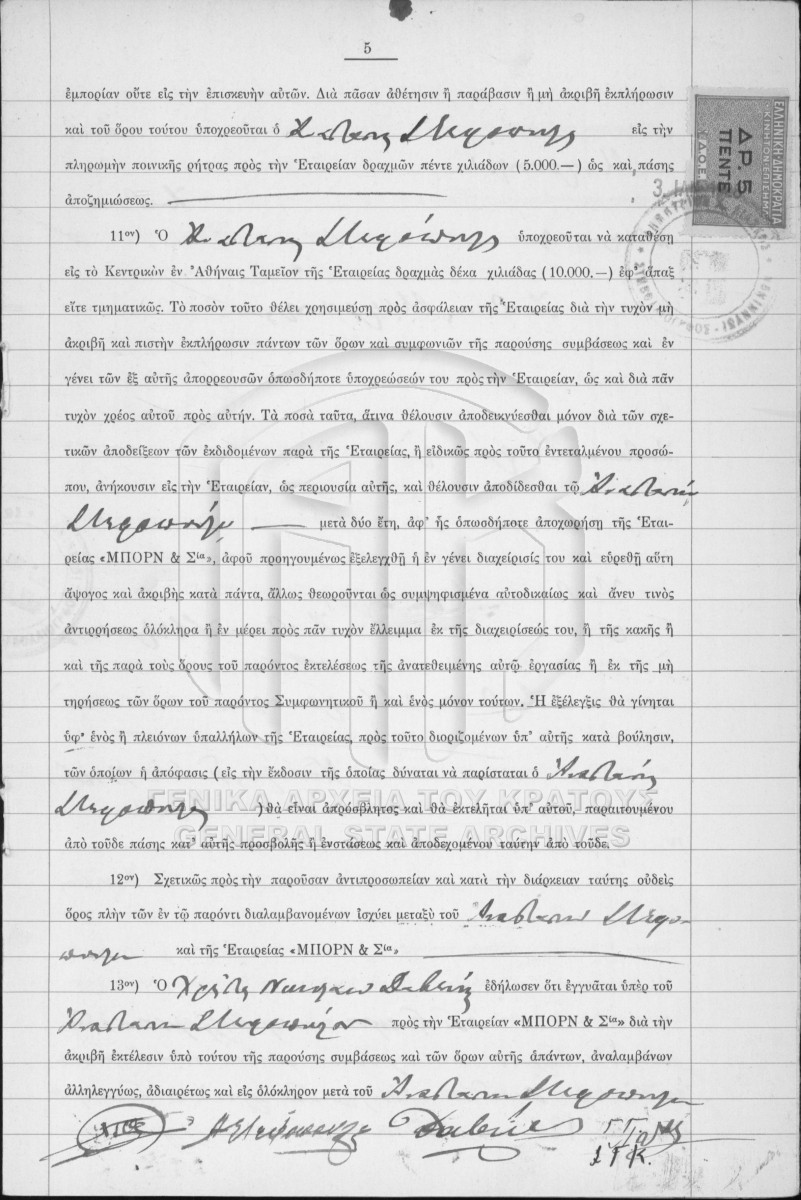 5
ἐμπορίαν οὔτε εἰς τὴν ἐπισκευὴν αὐτῶν. Διὰ πᾶσαν ἀθέτησιν ἢ παράβασιν ἢ μὴ ἀκριβῆ ἐκπλήρωσιν
καὶ τοῦ ὅρου τούτου ὑποχρεοῦται ὁ εἰς τὴν
πληρωμὴν ποινικῆς ρήτρας πρὸς τὴν Ἑταιρείαν δραχμῶν πέντε χιλιάδων (5.000.—) ὡς καὶ πάσης
ἀποζημιώσεως.
11ον) Ὁ ὑποχρεοῦται νὰ καταθέσῃ
εἰς τὸ Κεντρικὸν ἐν Ἀθήναις Ταμεῖον τῆς Ἑταιρείας δραχμὰς δέκα χιλιάδας (10.000.—) ἐφ' ἅπαξ
εἴτε τμηματικῶς. Τὸ ποσὸν τοῦτο θέλει χρησιμεύσῃ πρὸς ἀσφάλειαν τῆς Ἑταιρείας διὰ τὴν τυχὸν μὴ
ἀκριβῆ καὶ πιστὴν ἐκπλήρωσιν πάντων τῶν ὅρων καὶ συμφωνιῶν τῆς παρούσης συμβάσεως καὶ ἐν
γένει τῶν ἐξ αὐτῆς ἀπορρεουσῶν ὁπωσδήποτε ὑποχρεώσεών του πρὸς τὴν Ἑταιρείαν, ὡς καὶ διὰ πᾶν
τυχὸν χρέος αὐτοῦ πρὸς αὐτήν. Τὰ ποσὰ ταῦτα, ἅτινα θέλουσιν ἀποδεικνύεσθαι μόνον διὰ τῶν σχε-
τικῶν ἀποδείξεων τῶν ἐκδιδομένων παρὰ τῆς Ἑταιρείας, ἢ εἰδικῶς πρὸς τοῦτο ἐντεταλμένου προσώ-
που, ἀνήκουσιν εἰς τὴν Ἑταιρείαν, ὡς περιουσία αὐτῆς, καὶ θέλουσιν ἀποδίδεσθαι τῷ
μετὰ δύο ἔτη, ἀφ' ἧς ὁπωσδήποτε ἀποχωρήσῃ τῆς Ἑται-
ρείας «ΜΠΟΡΝ & Σία», ἀφοῦ προηγουμένως ἐξελεγχθῇ ἡ ἐν γένει διαχείρισίς του καὶ εὑρεθῇ αὕτη
ἄψογος καὶ ἀκριβὴς κατὰ πάντα, ἄλλως θεωροῦνται ὡς συμψηφισμένα αὐτοδικαίως καὶ ἄνευ τινὸς
ἀντιρρήσεως ὁλόκληρα ἢ ἐν μέρει πρὸς πᾶν τυχὸν ἔλλειμμα ἐκ τῆς διαχειρίσεώς του, ἢ τῆς κακῆς ἢ
καὶ τῆς παρὰ τοὺς ὅρους τοῦ παρόντος ἐκτελέσεως τῆς ἀνατεθειμένης αὐτῷ ἐργασίας ἢ ἐκ τῆς μὴ
τηρήσεως τῶν ὅρων τοῦ παρόντος Συμφωνητικοῦ ἢ καὶ ἑνὸς μόνου τούτων. Ἡ ἐξέλεγξις θὰ γίνηται
ὑφ' ἑνὸς ἢ πλειόνων ὑπαλλήλων τῆς Ἑταιρείας, πρὸς τοῦτο διοριζομένων ὑπ' αὐτῆς κατὰ βούλησιν,
τῶν ὁποίων ἡ ἀπόφασις (εἰς τὴν ἔκδοσιν τῆς ὁποίας δύναται νὰ παρίσταται ὁ
) θὰ εἶναι ἀπρόσβλητος καὶ θὰ ἐκτελῆται ὑπ' αὐτοῦ, παραιτουμένου
ἀπὸ τοῦδε πάσης κατ' αὐτῆς προσβολῆς ἢ ἐνστάσεως καὶ ἀποδεχομένου ταύτην ἀπὸ τοῦδε.
12ον) Σχετικῶς πρὸς τὴν παροῦσαν ἀντιπροσωπείαν καὶ κατὰ τὴν διάρκειαν ταύτης οὐδεὶς
ὅρος πλὴν τῶν ἐν τῷ παρόντι διαλαμβανομένων ἰσχύει μεταξὺ τοῦ
καὶ τῆς Ἑταιρείας «ΜΠΟΡΝ & Σία»
13ον) Ὁ ἐδήλωσεν ὅτι ἐγγυᾶται ὑπὲρ τοῦ
πρὸς τὴν Ἑταιρείαν «ΜΠΟΡΝ & Σία» διὰ τὴν
ἀκριβῆ ἐκτέλεσιν ὑπὸ τούτου τῆς παρούσης συμβάσεως καὶ τῶν ὅρων αὐτῆς ἁπάντων, ἀναλαμβάνων
ἀλληλεγγύως, ἀδιαιρέτως καὶ εἰς ὁλόκληρον μετὰ τοῦ
ΕΛΛΗΝΙΚΗ ΔΗΜΟΚΡΑΤΙΑ
ΔΡ. 5
ΠΕΝΤΕ
ΓΕΝΙΚΑ ΑΡΧΕΙΑ ΤΟΥ ΚΡΑΤΟΥΣ
GENERAL STATE ARCHIVES